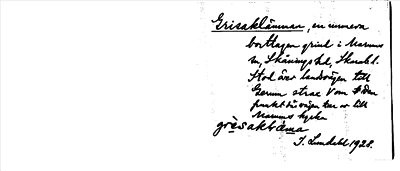 Grisaklämman, en numera
borttagen grind i Marums
sn, Skånings hd, Skarabl.
Stod över landsvägen till
Gerum strax V om den
punkt där vägen tar av till
Marums kyrka
grèsakláma
J. Lundahl 1928.